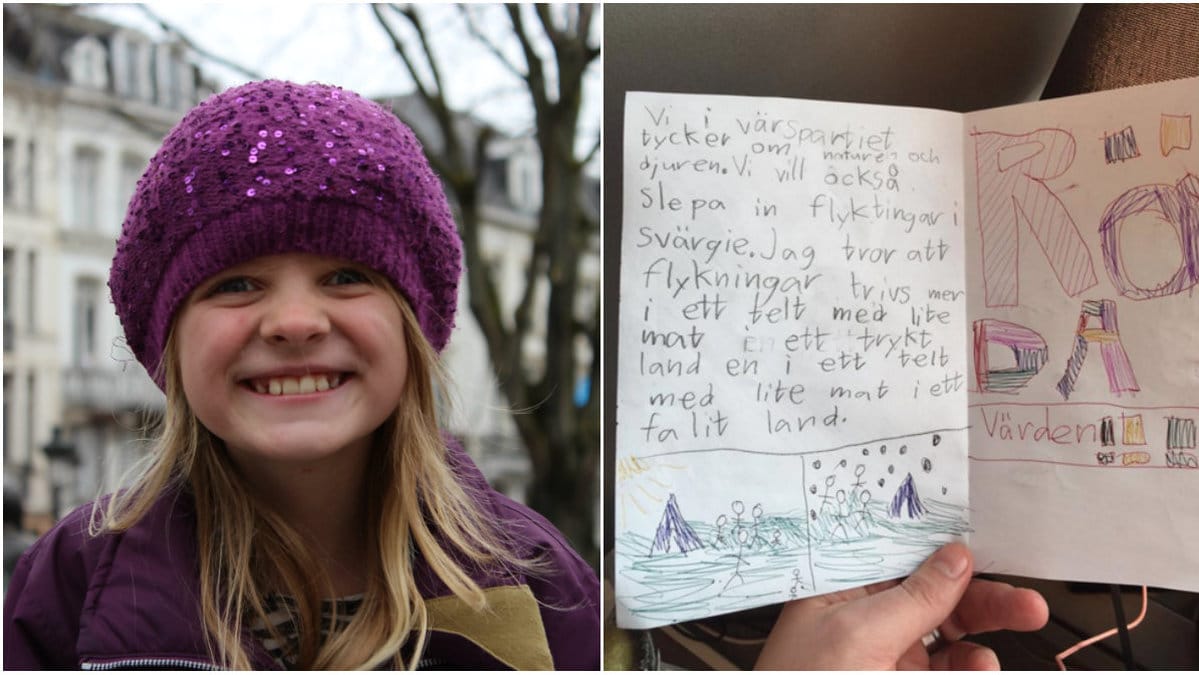 Vi i värspartiet
tycker om naturen och
djuren. Vi vill också
slepa in flyktingar i
svärgie. Jag tror att
flykningar trivs mer
i ett telt med lite
mat i ett trykt
land en i ett telt
med lite mat i ett
falit land.
RÖ
DA
Värden!